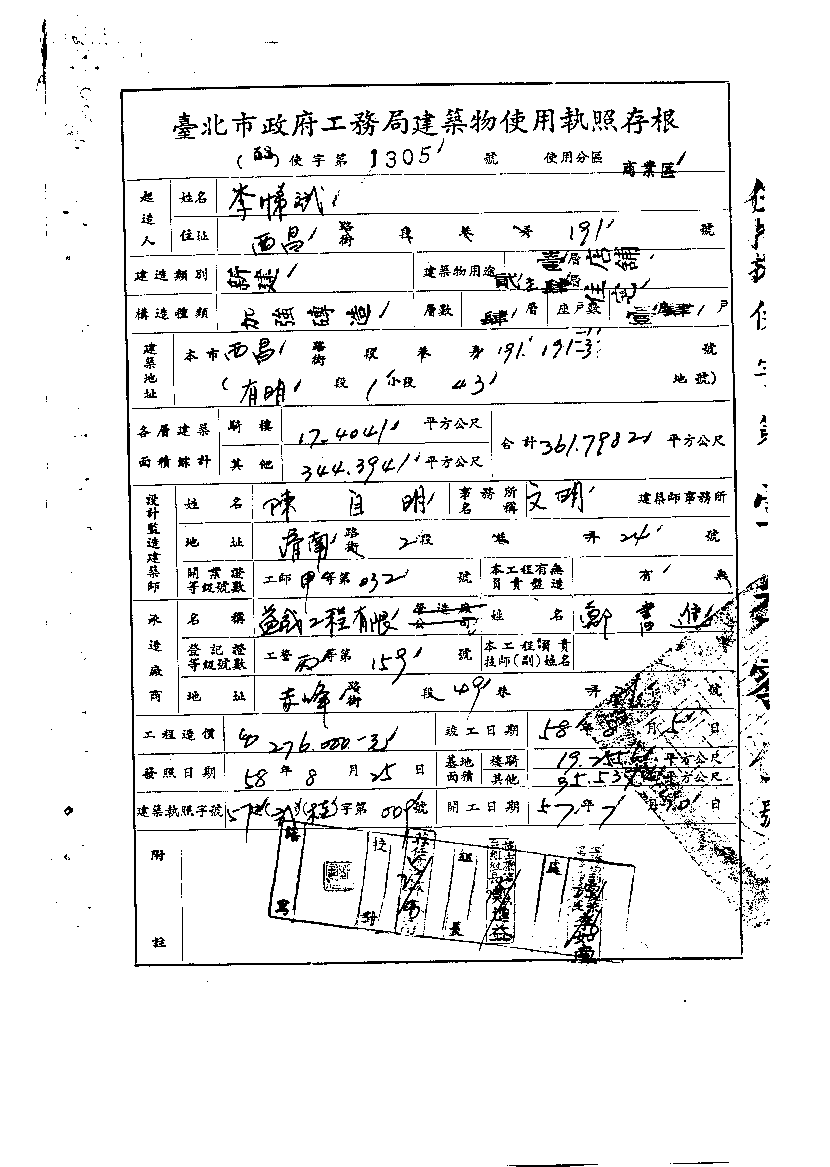 臺北市政府工務局建築物使用執照存根
使字第 1305 號 使用分區 商業區
起造人 姓名 李悌斌
住址 西昌 路街 段 巷 弄 191 號
建造類別 新建 建築物用途 壹層店舖 貳至肆層住宅
構造種類 加強磚造 層數 肆層 座戶數 壹座肆戶
建築地址 本市西昌 路街 段 巷 弄 191.191-3 號
(有明 段 1 小段 43 地號)
各層建築面積總計 騎樓 17.4041 平方公尺 合計 361.7982 平方公尺
其他 344.3941 平方公尺
設計監造建築師 姓名 陳自明 事務所名稱 文明 建築師事務所
地址 濟南 路街 2段 巷 弄 24 號
開業證等級號數 工師甲等第032號 本工程有無負責監造 有 無
承造廠商 名稱 益成工程有限 營造廠公司 姓名 鄭書進
登記證等級號數 工營丙等第159號 本工程負責技師(副)姓名
地址 赤峰 路街 段 49 巷 弄 號
工程造價 276.000-35 竣工日期 58年8月5日
發照日期 58年8月25日 基地面積 騎樓 19.255 平方公尺
其他 95.539 平方公尺
建築執照字號 57 字第009號 開工日期 57年7月 日
附註